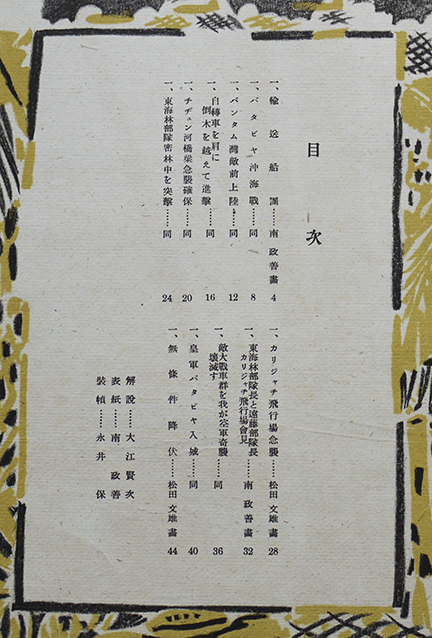 目次
一、輸送船團……南政善畫 4
一、バタビヤ沖海戰……同 8
一、バンタム灣敵前上陸……同 12
一、自轉車を肩に
倒木を越えて進擊……同 16
一、チチュン河橋梁急襲確保……同 20
一、東海林部隊密林中を突擊……同 24
一、カリジャチ飛行場急襲……松田文雄畫 28
一、東海林部隊長と遠藤部隊長
カリジャチ飛行場會見……南政善畫 32
一、敵大戰車群を我が空軍奇襲
壞滅す……同 36
一、皇軍バタビヤ入城……同 40
一、無條件降伏……松田文雄畫 44
解說……大江賢次
表紙……南政善
裝幀……永井保